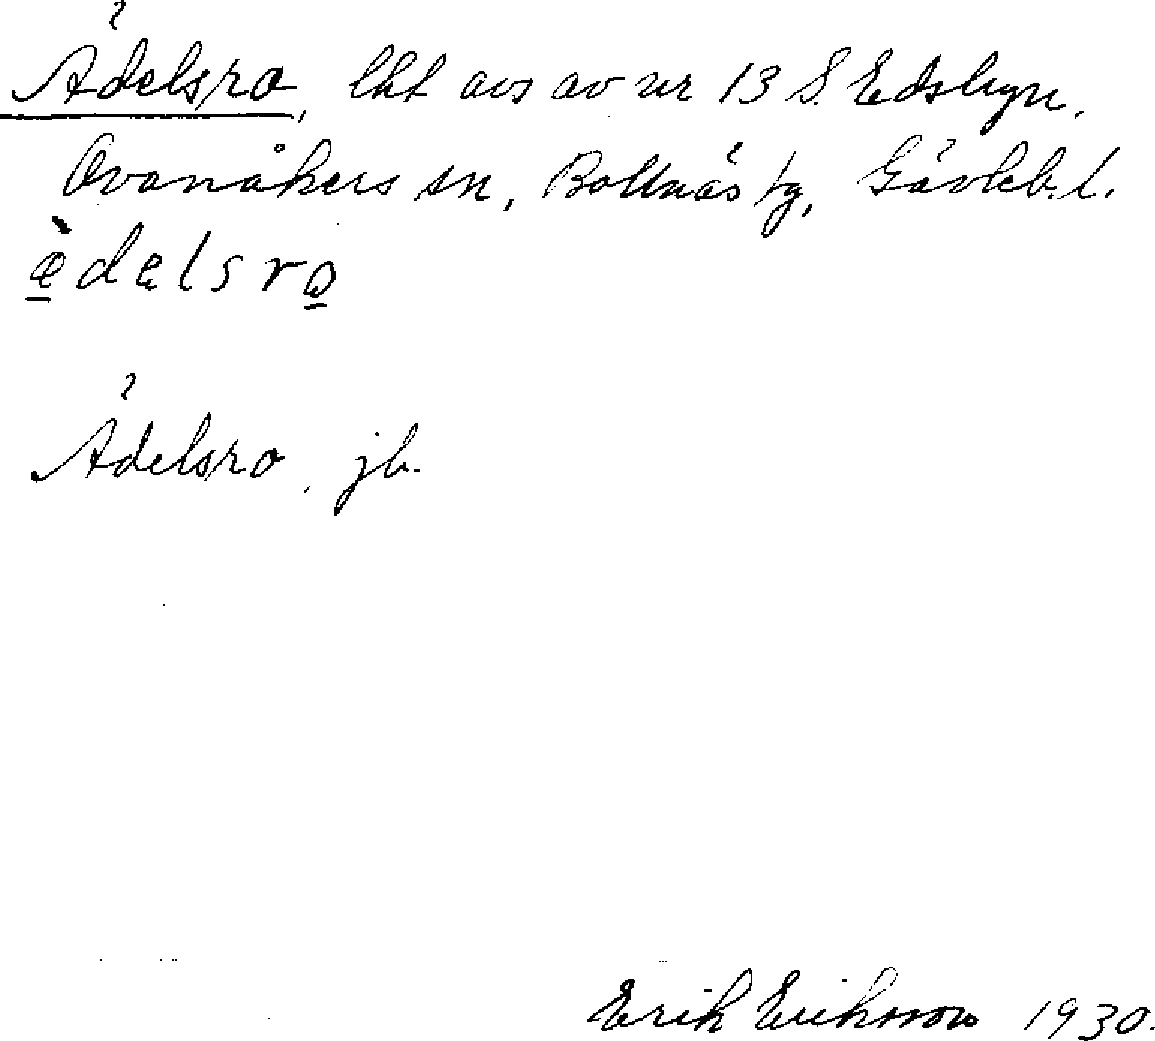 Ädelsro, lht avs av nr 13 S. Edsbyn,
Ovanåkers sn, Bollnäs tg, Gävleb. l.
ædelsro
Ädelsro, jb.
Erik Eriksson 1930.